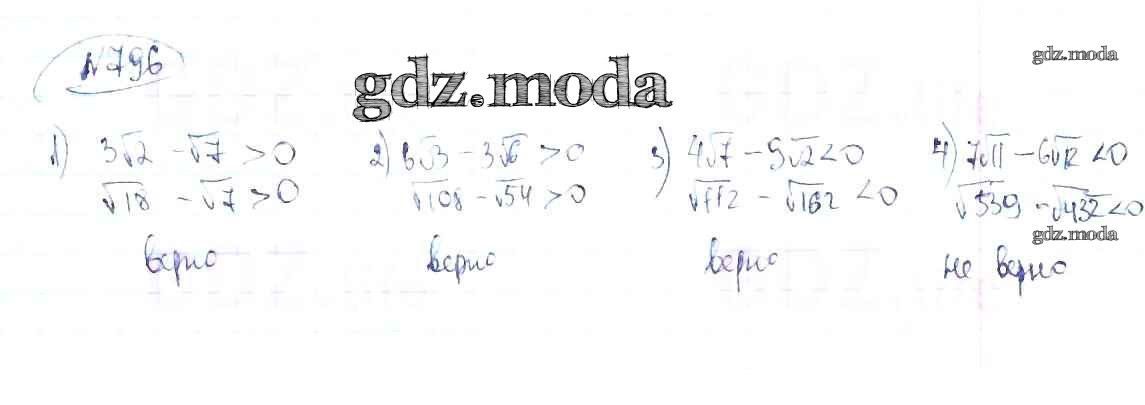 №796
gdz.moda
gdz.moda
1) 3√2 - √7 > 0
√18 - √7 > 0
верно
2) 6√3 - 3√6 > 0
√108 - √54 > 0
верно
3) 4√7 - 9√2 < 0
√112 - √162 < 0
верно
4) 7√11 - 6√12 < 0
√539 - √432 < 0
gdz.moda
не верно